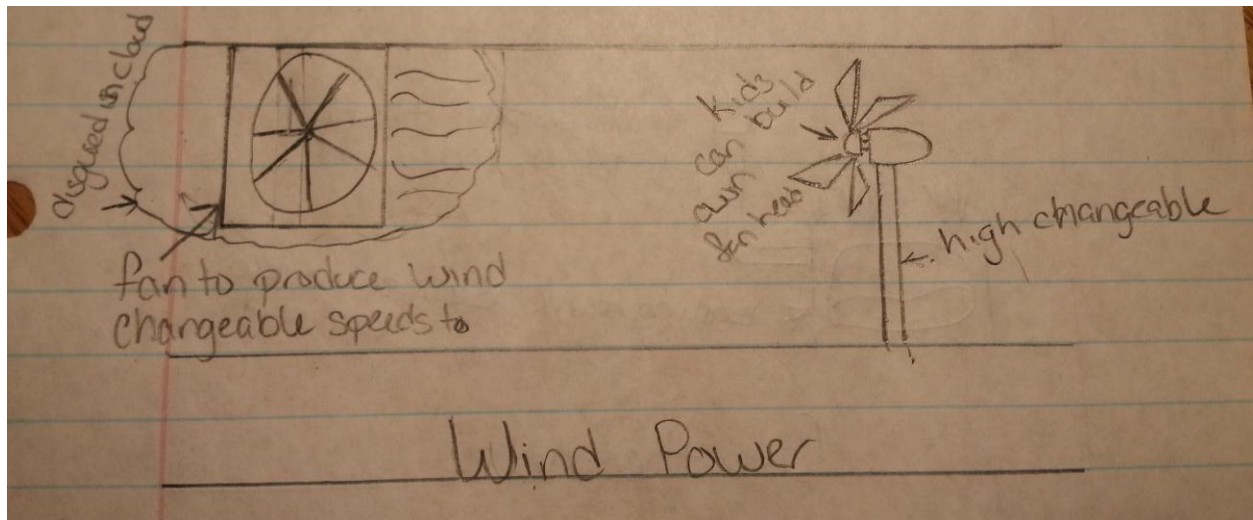 disguised in cloud
fan to produce wind
changeable speeds to
kids
can build
own
fan head
high changeable
Wind Power